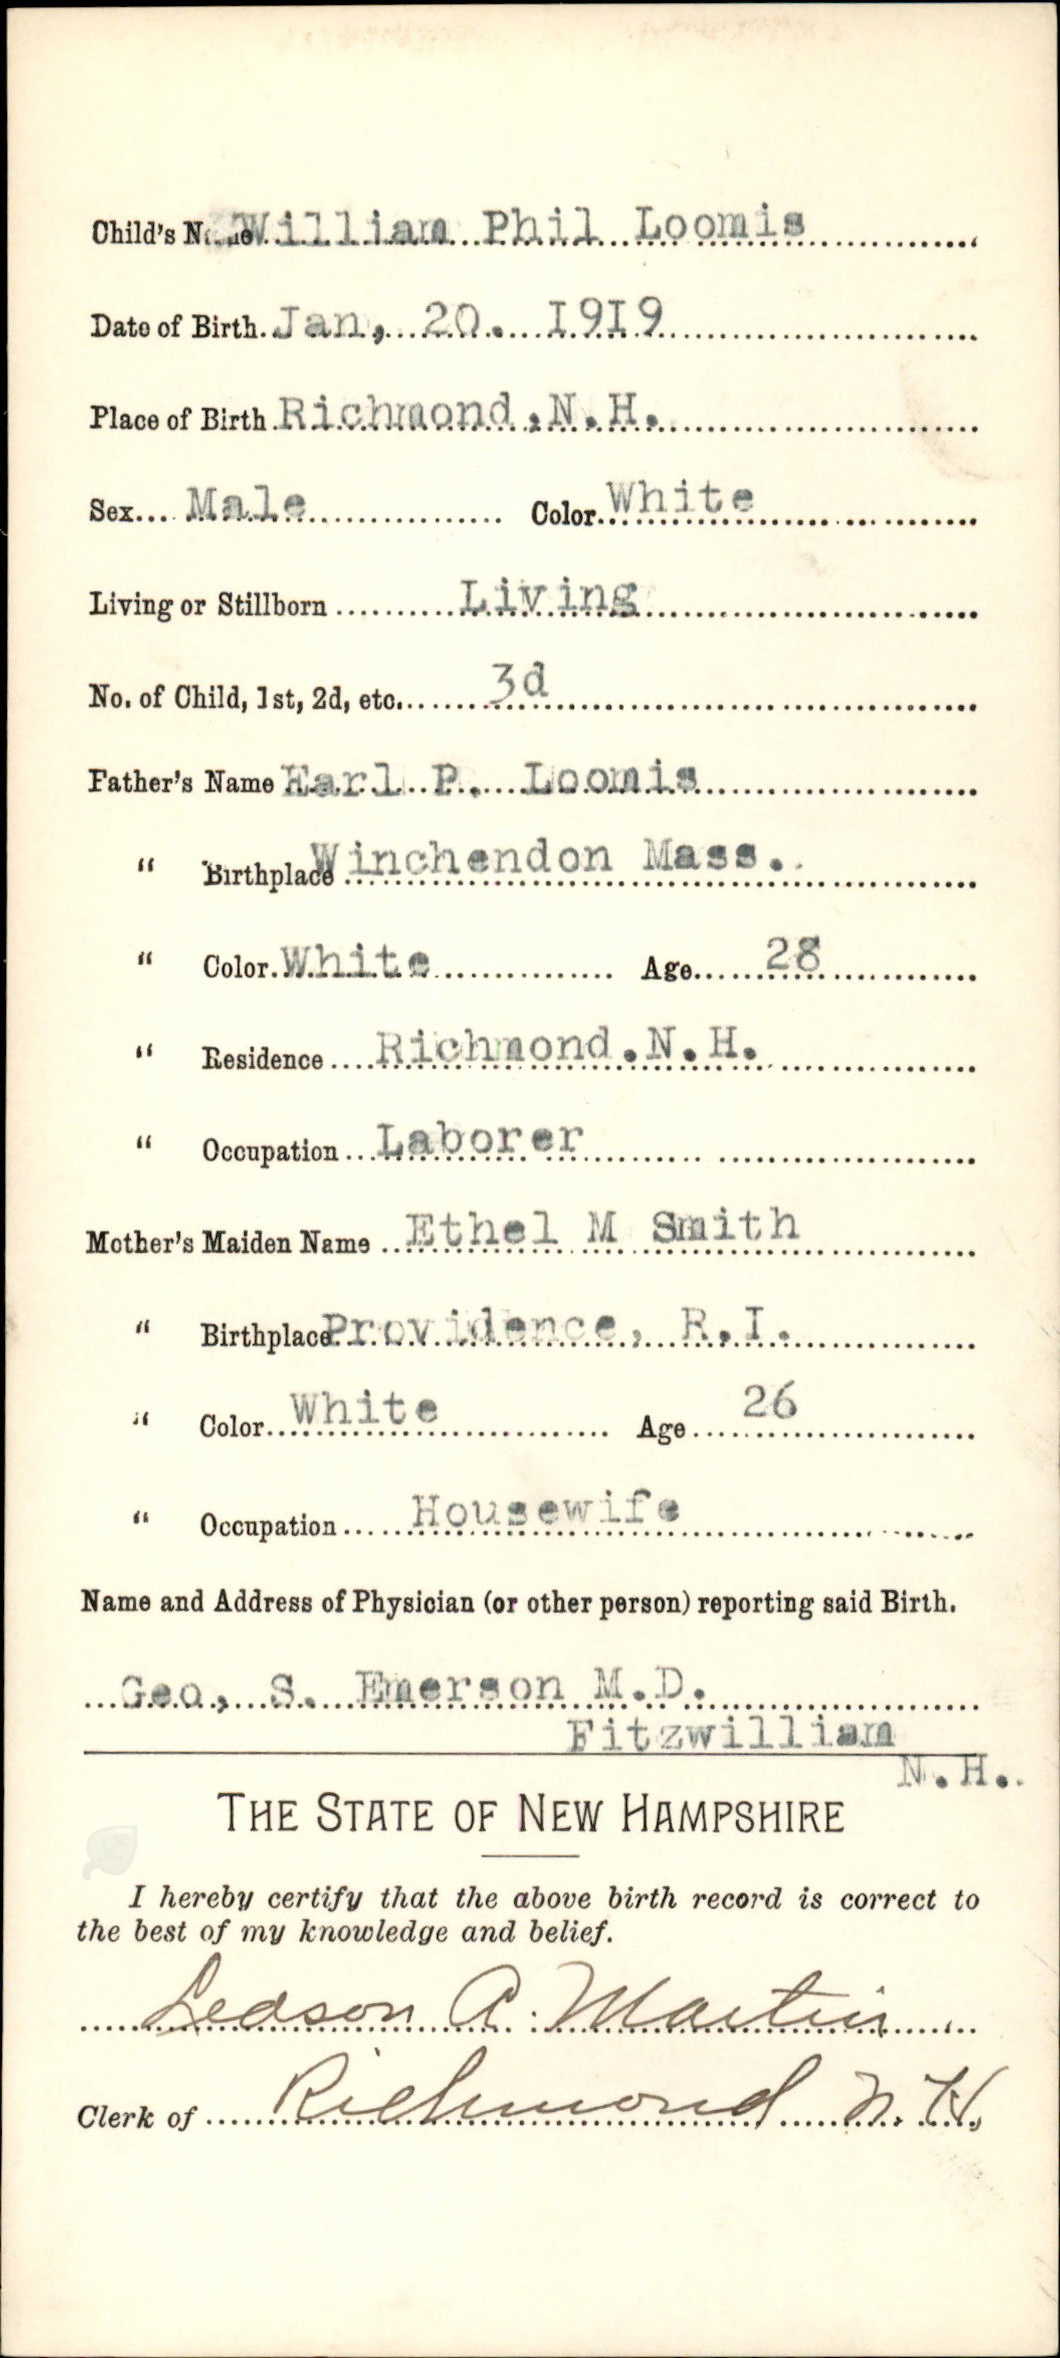 Child's Name William Phil Loomis
Date of Birth Jan, 20. 1919
Place of Birth Richmond, N.H.
Sex Male Color White
Living or Stillborn Living
No. of Child, 1st, 2d, etc. 3d
Father's Name Earl P. Loomis
" Birthplace Winchendon Mass.
" Color White Age 28
" Residence Richmond.N.H.
" Occupation Laborer
Mother's Maiden Name Ethel M Smith
" Birthplace Providence, R.I.
" Color White Age 26
" Occupation Housewife
Name and Address of Physician (or other person) reporting said Birth.
Geo, S. Emerson M.D.
Fitzwilliam
N.H.
THE STATE OF NEW HAMPSHIRE
I hereby certify that the above birth record is correct to
the best of my knowledge and belief.
A. Martin
Clerk of Richmond N.H.